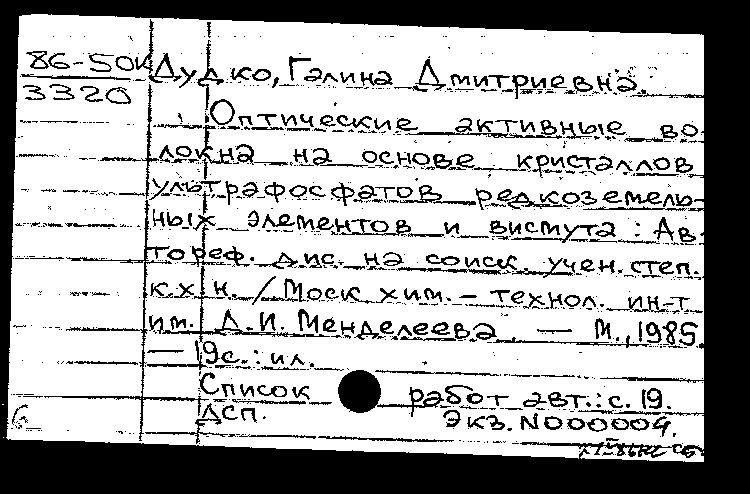 86-50к
3320
Дудко, Галина Дмитриевна.
Оптические активные во-
локна на основе кристаллов
ультрафосфатов редкоземель-
ных элементов и висмута: Ав-
тореф. дис. на соиск. учен. степ.
к.х.н. / Моск хим.-технол. ин-т
им. Д.И. Менделеева. — М., 1985.
— 19с.: ил.
Список работ авт.: с. 19.
ДСП. Экз. N000004.